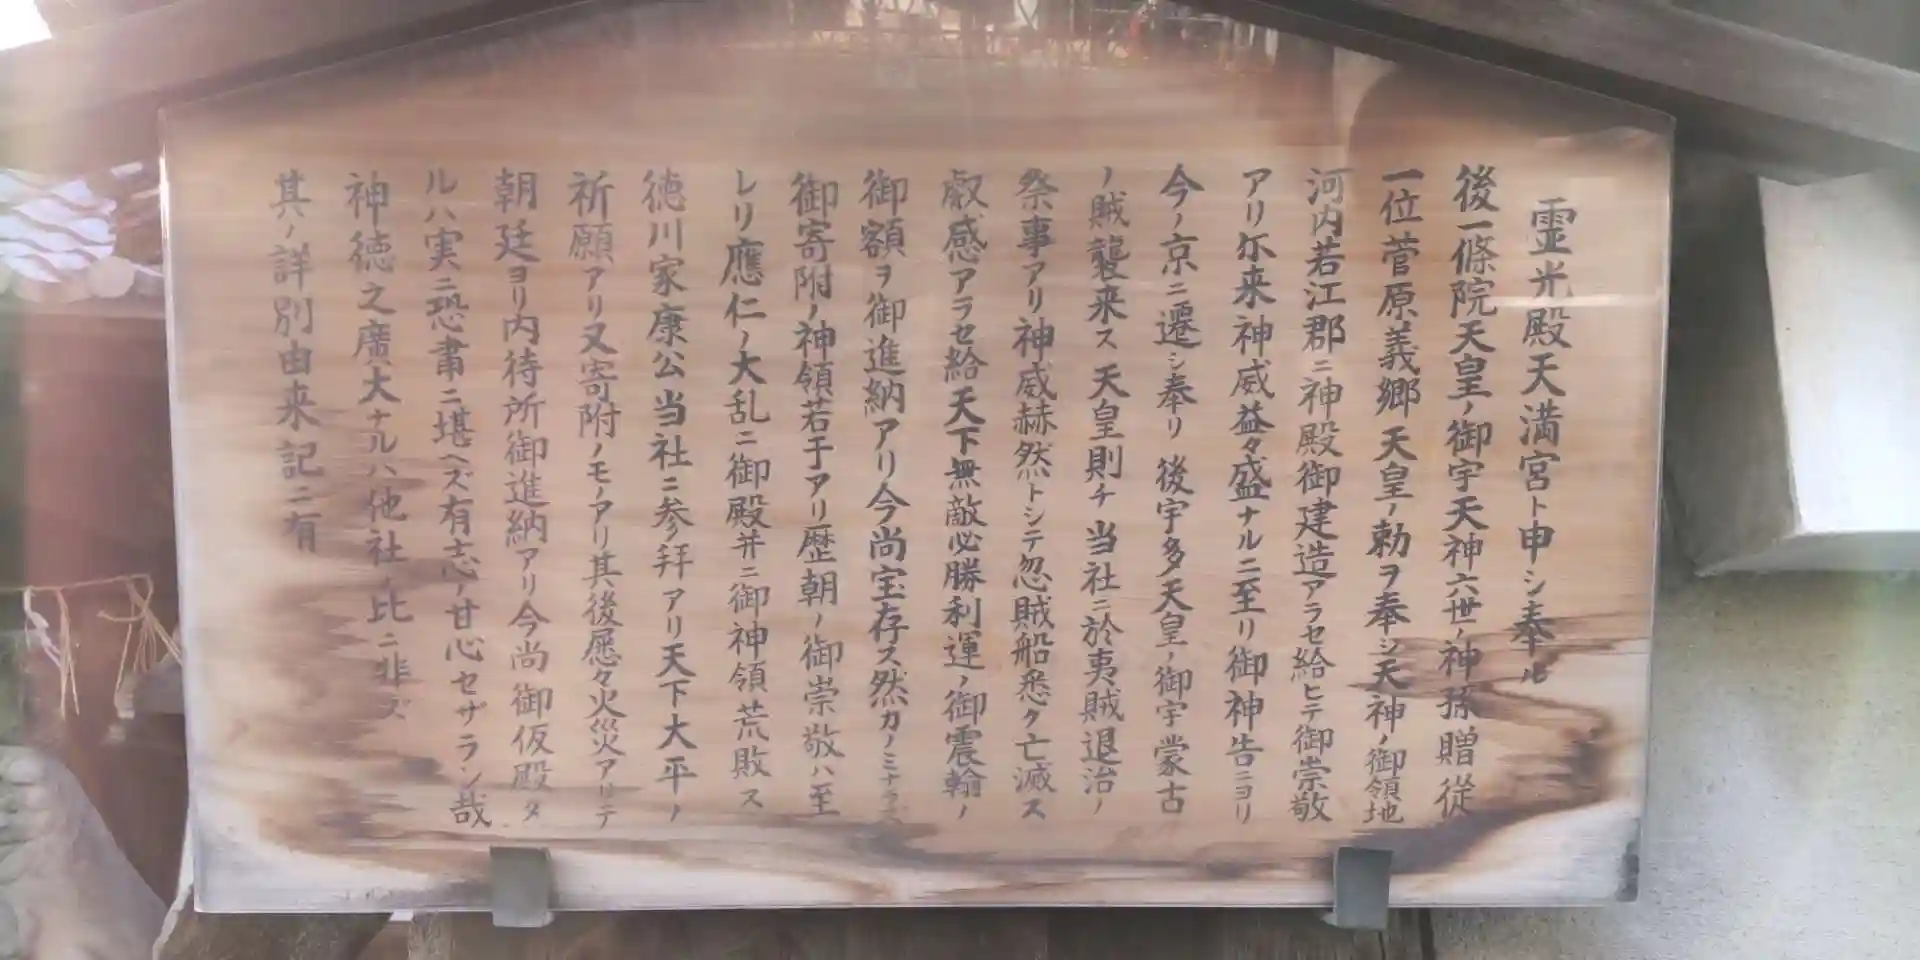 霊光殿天満宮ト申シ奉ル
後一條院天皇ノ御宇天神六世ノ神孫贈従
一位菅原義郷天皇ノ勅ヲ奉シ天神ノ御領地
河内若江郡ニ神殿御建造アラセ給ヒテ御崇敬
アリ尓来神威益々盛ナルニ至リ御神告ニヨリ
今ノ京ニ遷シ奉リ後宇多天皇ノ御宇蒙古
ノ賊襲来ス天皇則チ当社ニ於夷賊退治ノ
祭事アリ神威赫然トシテ忽賊船悉ク亡滅ス
叡感アラセ給天下無敵必勝利運ノ御震翰ノ
御額ヲ御進納アリ今尚宝存ス然カノミナラス
御寄附ノ神領若干アリ歴朝ノ御崇敬ハ至
レリ應仁ノ大乱ニ御殿并ニ御神領荒敗ス
徳川家康公当社ニ参拝アリ天下大平ノ
祈願アリ又寄附ノモノアリ其後屡々火災アリテ
朝廷ヨリ内待所御進納アリ今尚御仮殿タ
ルハ実ニ恐粛ニ堪ヘズ有志ノ甘心セザラン哉
神徳之廣大ナルハ他社ノ比ニ非ズ
其ノ詳別由来記ニ有